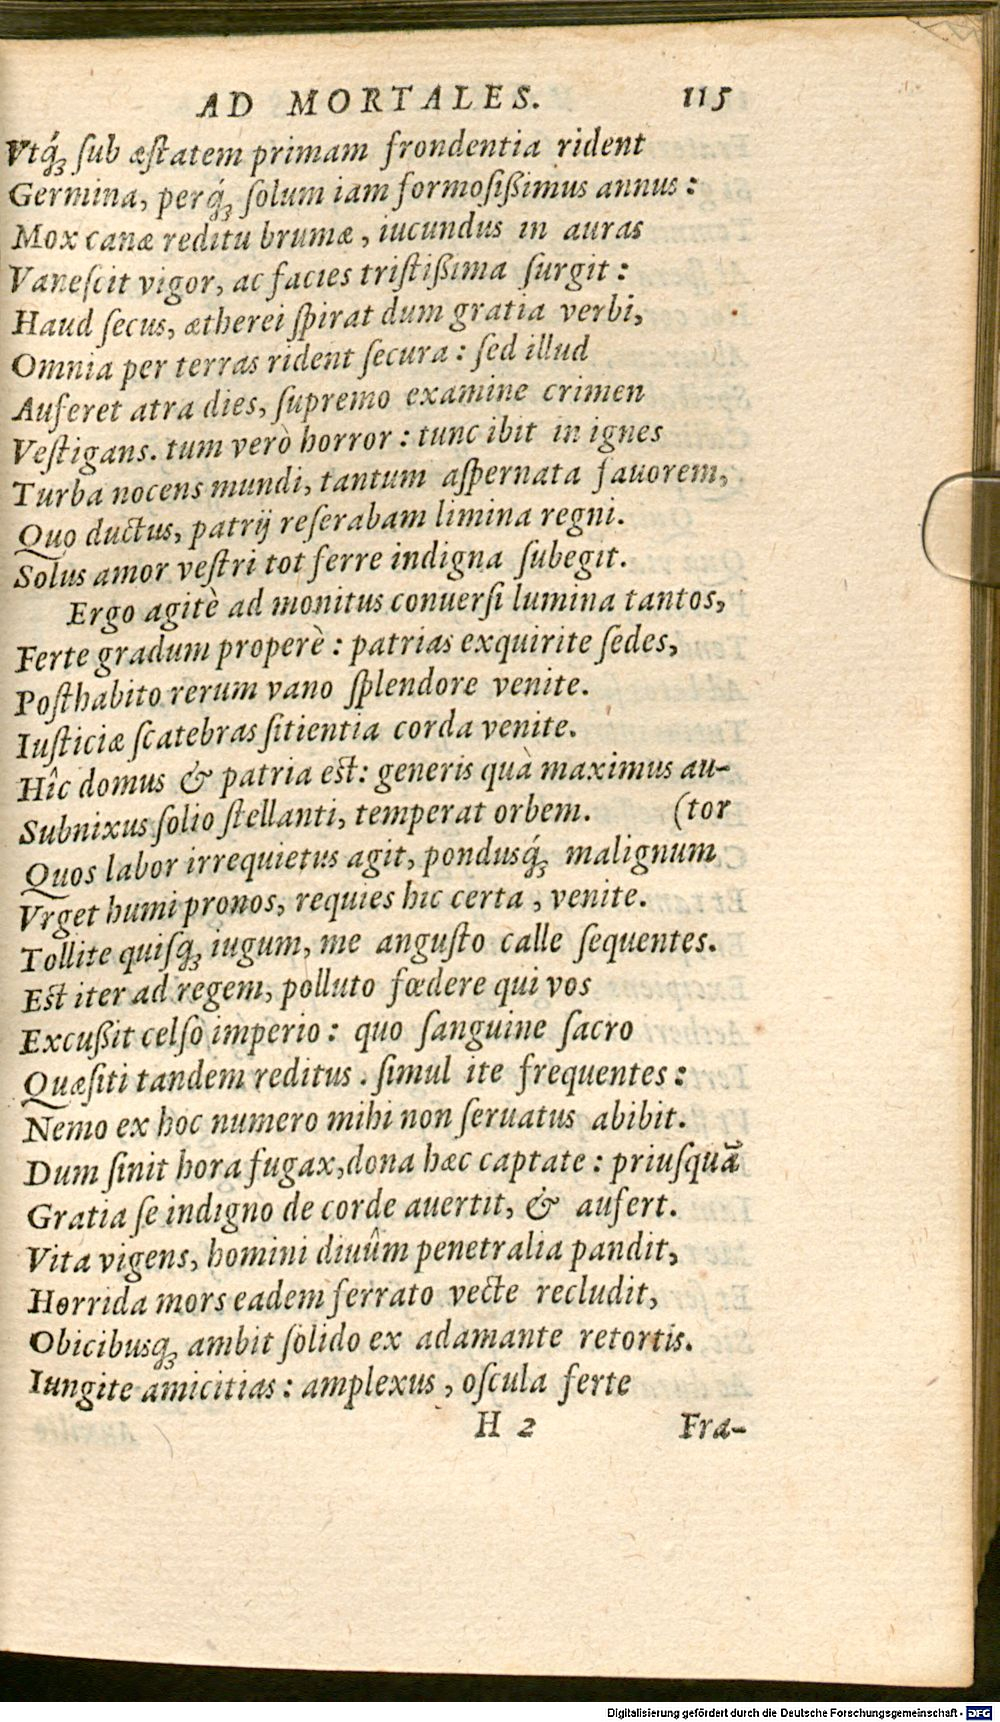 AD MORTALES. 115
Vtq́; ſub æſtatem primam frondentia rident
Germina, perq́; ſolum iam formoſißimus annus:
Mox canæ reditu brumæ, iucundus in auras
Vaneſcit vigor, ac facies triſtißima ſurgit:
Haud ſecus, ætherei ſpirat dum gratia verbi,
Omnia per terras rident ſecura: ſed illud
Auferet atra dies, ſupremo examine crimen
Veſtigans. tum verò horror: tunc ibit in ignes
Turba nocens mundi, tantum aſpernata fauorem,
Quo ductus, patrij reſerabam limina regni.
Solus amor veſtri tot ferre indigna ſubegit.
Ergo agitè ad monitus conuerſi lumina tantos,
Ferte gradum properè: patrias exquirite ſedes,
Poſthabito rerum vano ſplendore venite.
Iuſticiæ ſcatebras ſitientia corda venite.
Hîc domus & patria eſt: generis quà maximus au-
Subnixus ſolio ſtellanti, temperat orbem. (tor
Quos labor irrequietus agit, pondusq́; malignum
Vrget humi pronos, requies hic certa, venite.
Tollite quiſq; iugum, me anguſto calle ſequentes.
Eſt iter ad regem, polluto fœdere qui vos
Excußit celſo imperio: quo ſanguine ſacro
Quæſiti tandem reditus. ſimul ite frequentes:
Nemo ex hoc numero mihi non ſeruatus abibit.
Dum ſinit hora fugax, dona hæc captate: priuſquã
Gratia ſe indigno de corde auertit, & aufert.
Vita vigens, homini diuûm penetralia pandit,
Horrida mors eadem ferrato vecte recludit,
Obicibusq; ambit ſolido ex adamante retortis.
Iungite amicitias: amplexus, oſcula ferte
H 2 Fra-
Digitalisierung gefördert durch die Deutsche Forschungsgemeinschaft - DFG